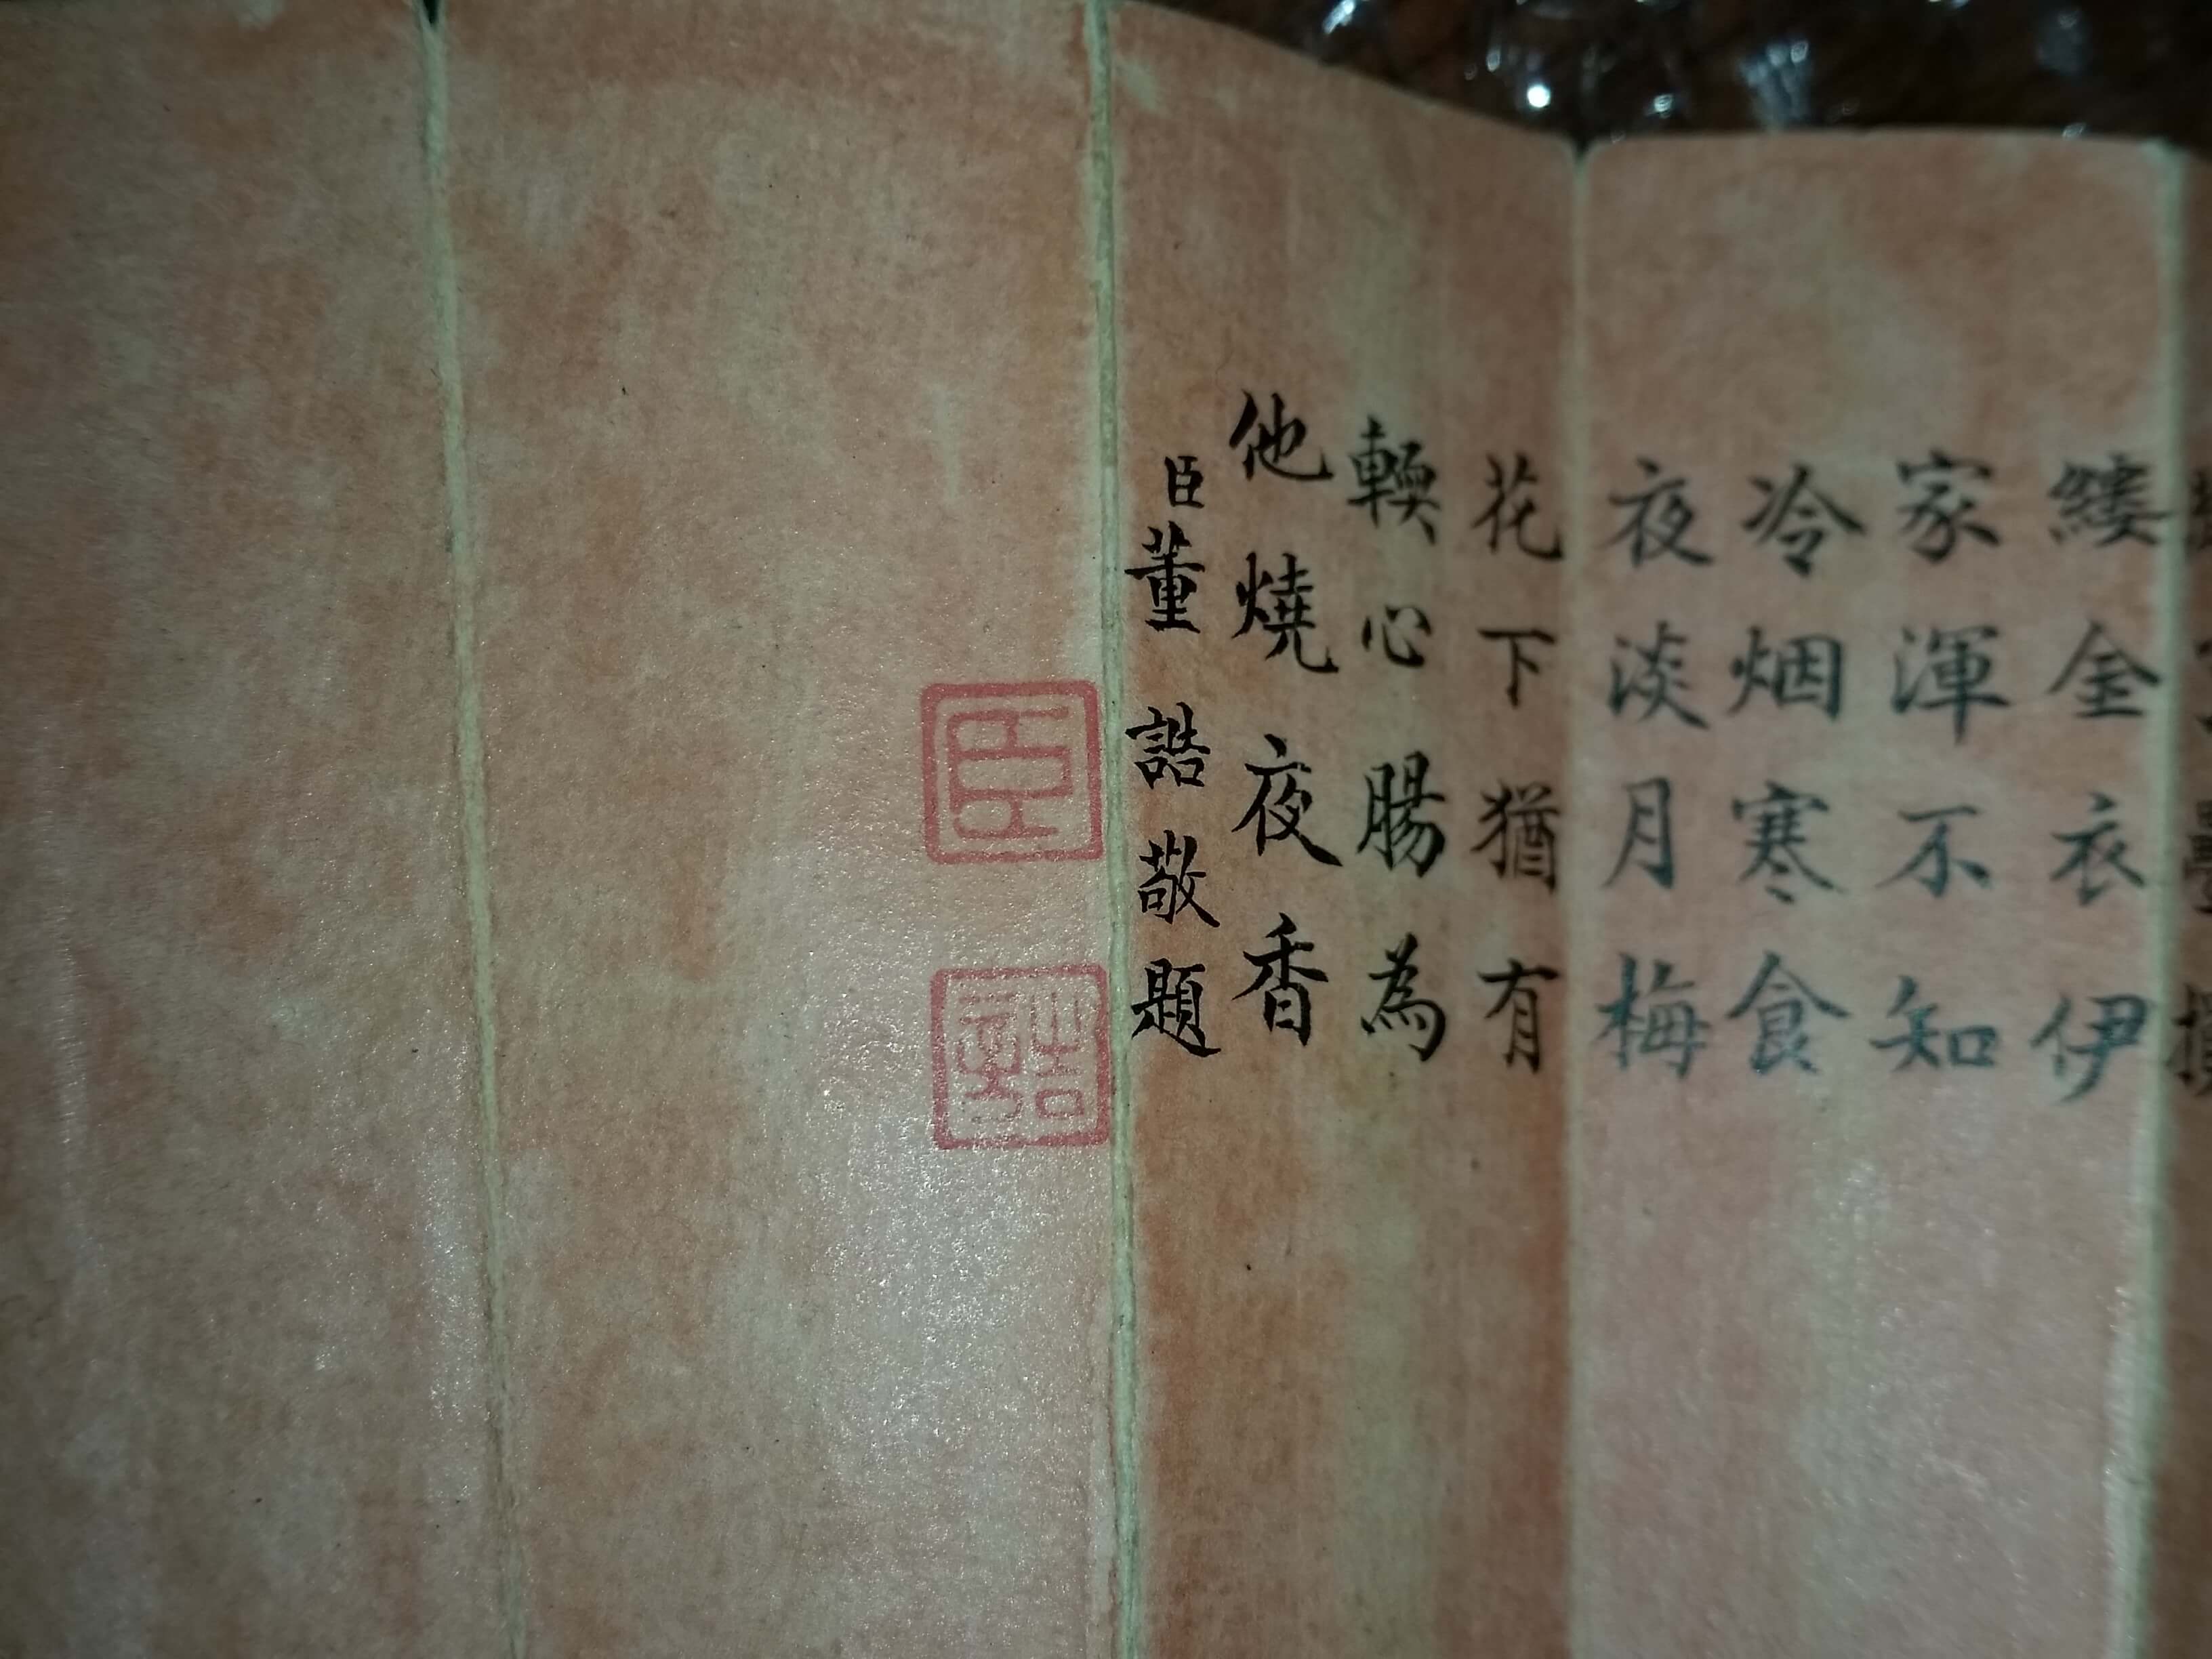 縷金衣伊
家渾不知
冷烟寒食
夜淡月梅
花下猶有
輭心腸為
他燒夜香
臣董誥敬題
臣
誥